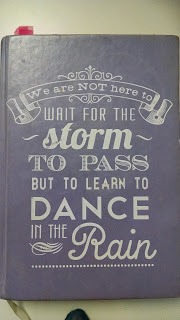 We are NOT here to
WAIT FOR THE
storm
TO PASS
BUT TO LEARN TO
DANCE
IN THE
Rain